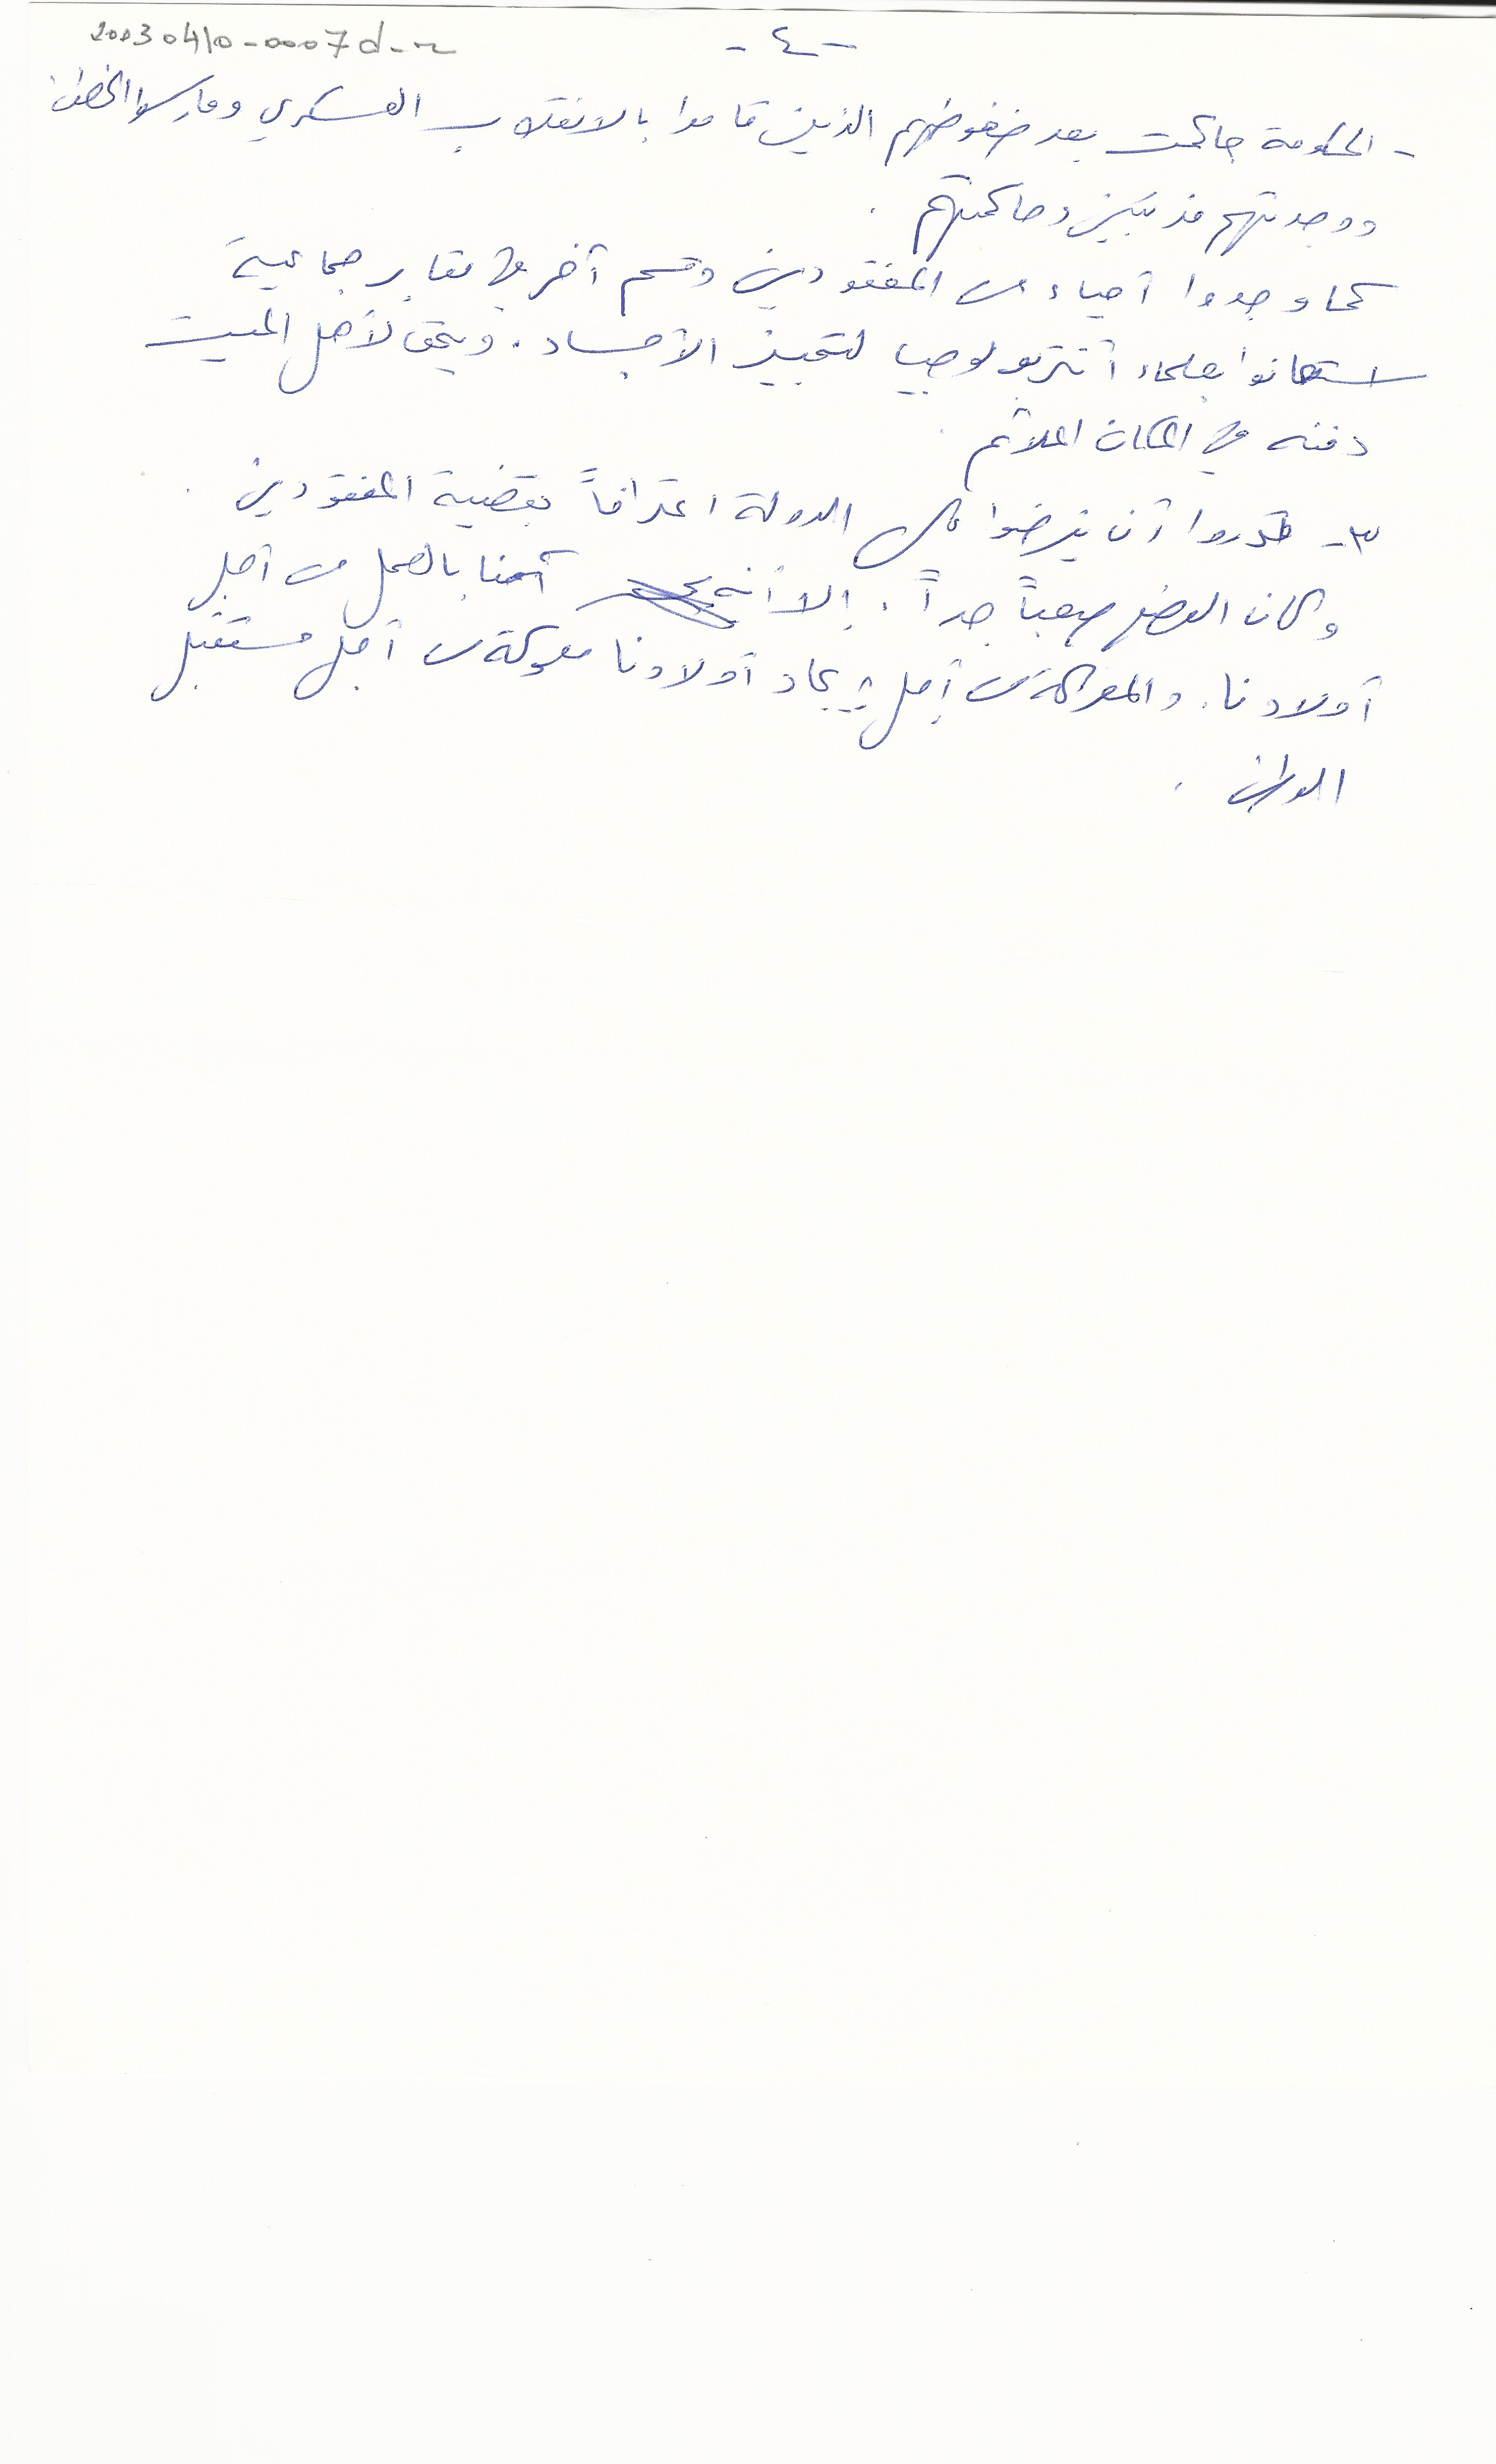 20030410-0007d-r
- ٤ -
- الحكومة حاكمت بعد ضغوطهم الذين قاموا بالانقلاب العسكري ومارسوا الخطف
ووجدتهم مذنبين وحاكمتهم .
كما وجدوا أحياء من المفقودين وقسم آخر في مقابر جماعية
استعانوا بعلماء أنتربولوجيا لتمييز الأجساد . ويحق لأهل الميت
دفنه في المكان الملائم .
٣- قدروا أن يفرضوا على الدولة اعترافاً بقضية المفقودين .
وكان الوضع صعباً جداً . إلا أنه آمنا بالعمل من أجل
أولادنا . والمعركة من أجل إيجاد أولادنا معركة من أجل مستقبل
الوطن .